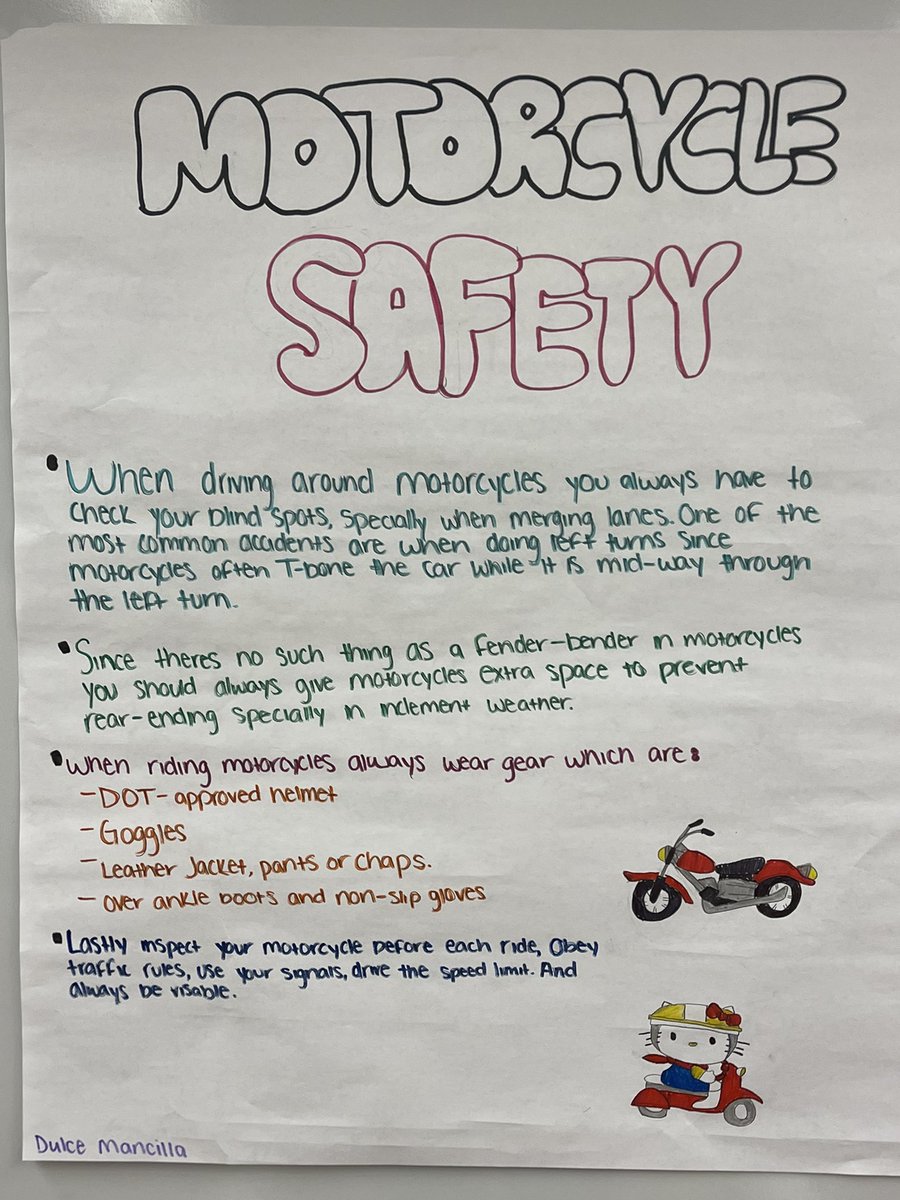 MOTORCYCLE
SAFETY
• When driving around motorcycles you always have to
check your blind spots, specially when merging lanes. One of the
most common accidents are when doing left turns since
motorcycles often T-bone the car while it is mid-way through
the left turn.
• Since theres no such thing as a fender-bender in motorcycles
you should always give motorcycles extra space to prevent
rear-ending specially in inclement weather.
• When riding motorcycles always wear gear which are:
- DOT- approved helmet
- Goggles
- Leather Jacket, pants or chaps.
- over ankle boots and non-slip gloves
• Lastly inspect your motorcycle before each ride, Obey
traffic rules, use your signals, drive the speed limit. And
always be visable.
Dulce Mancilla